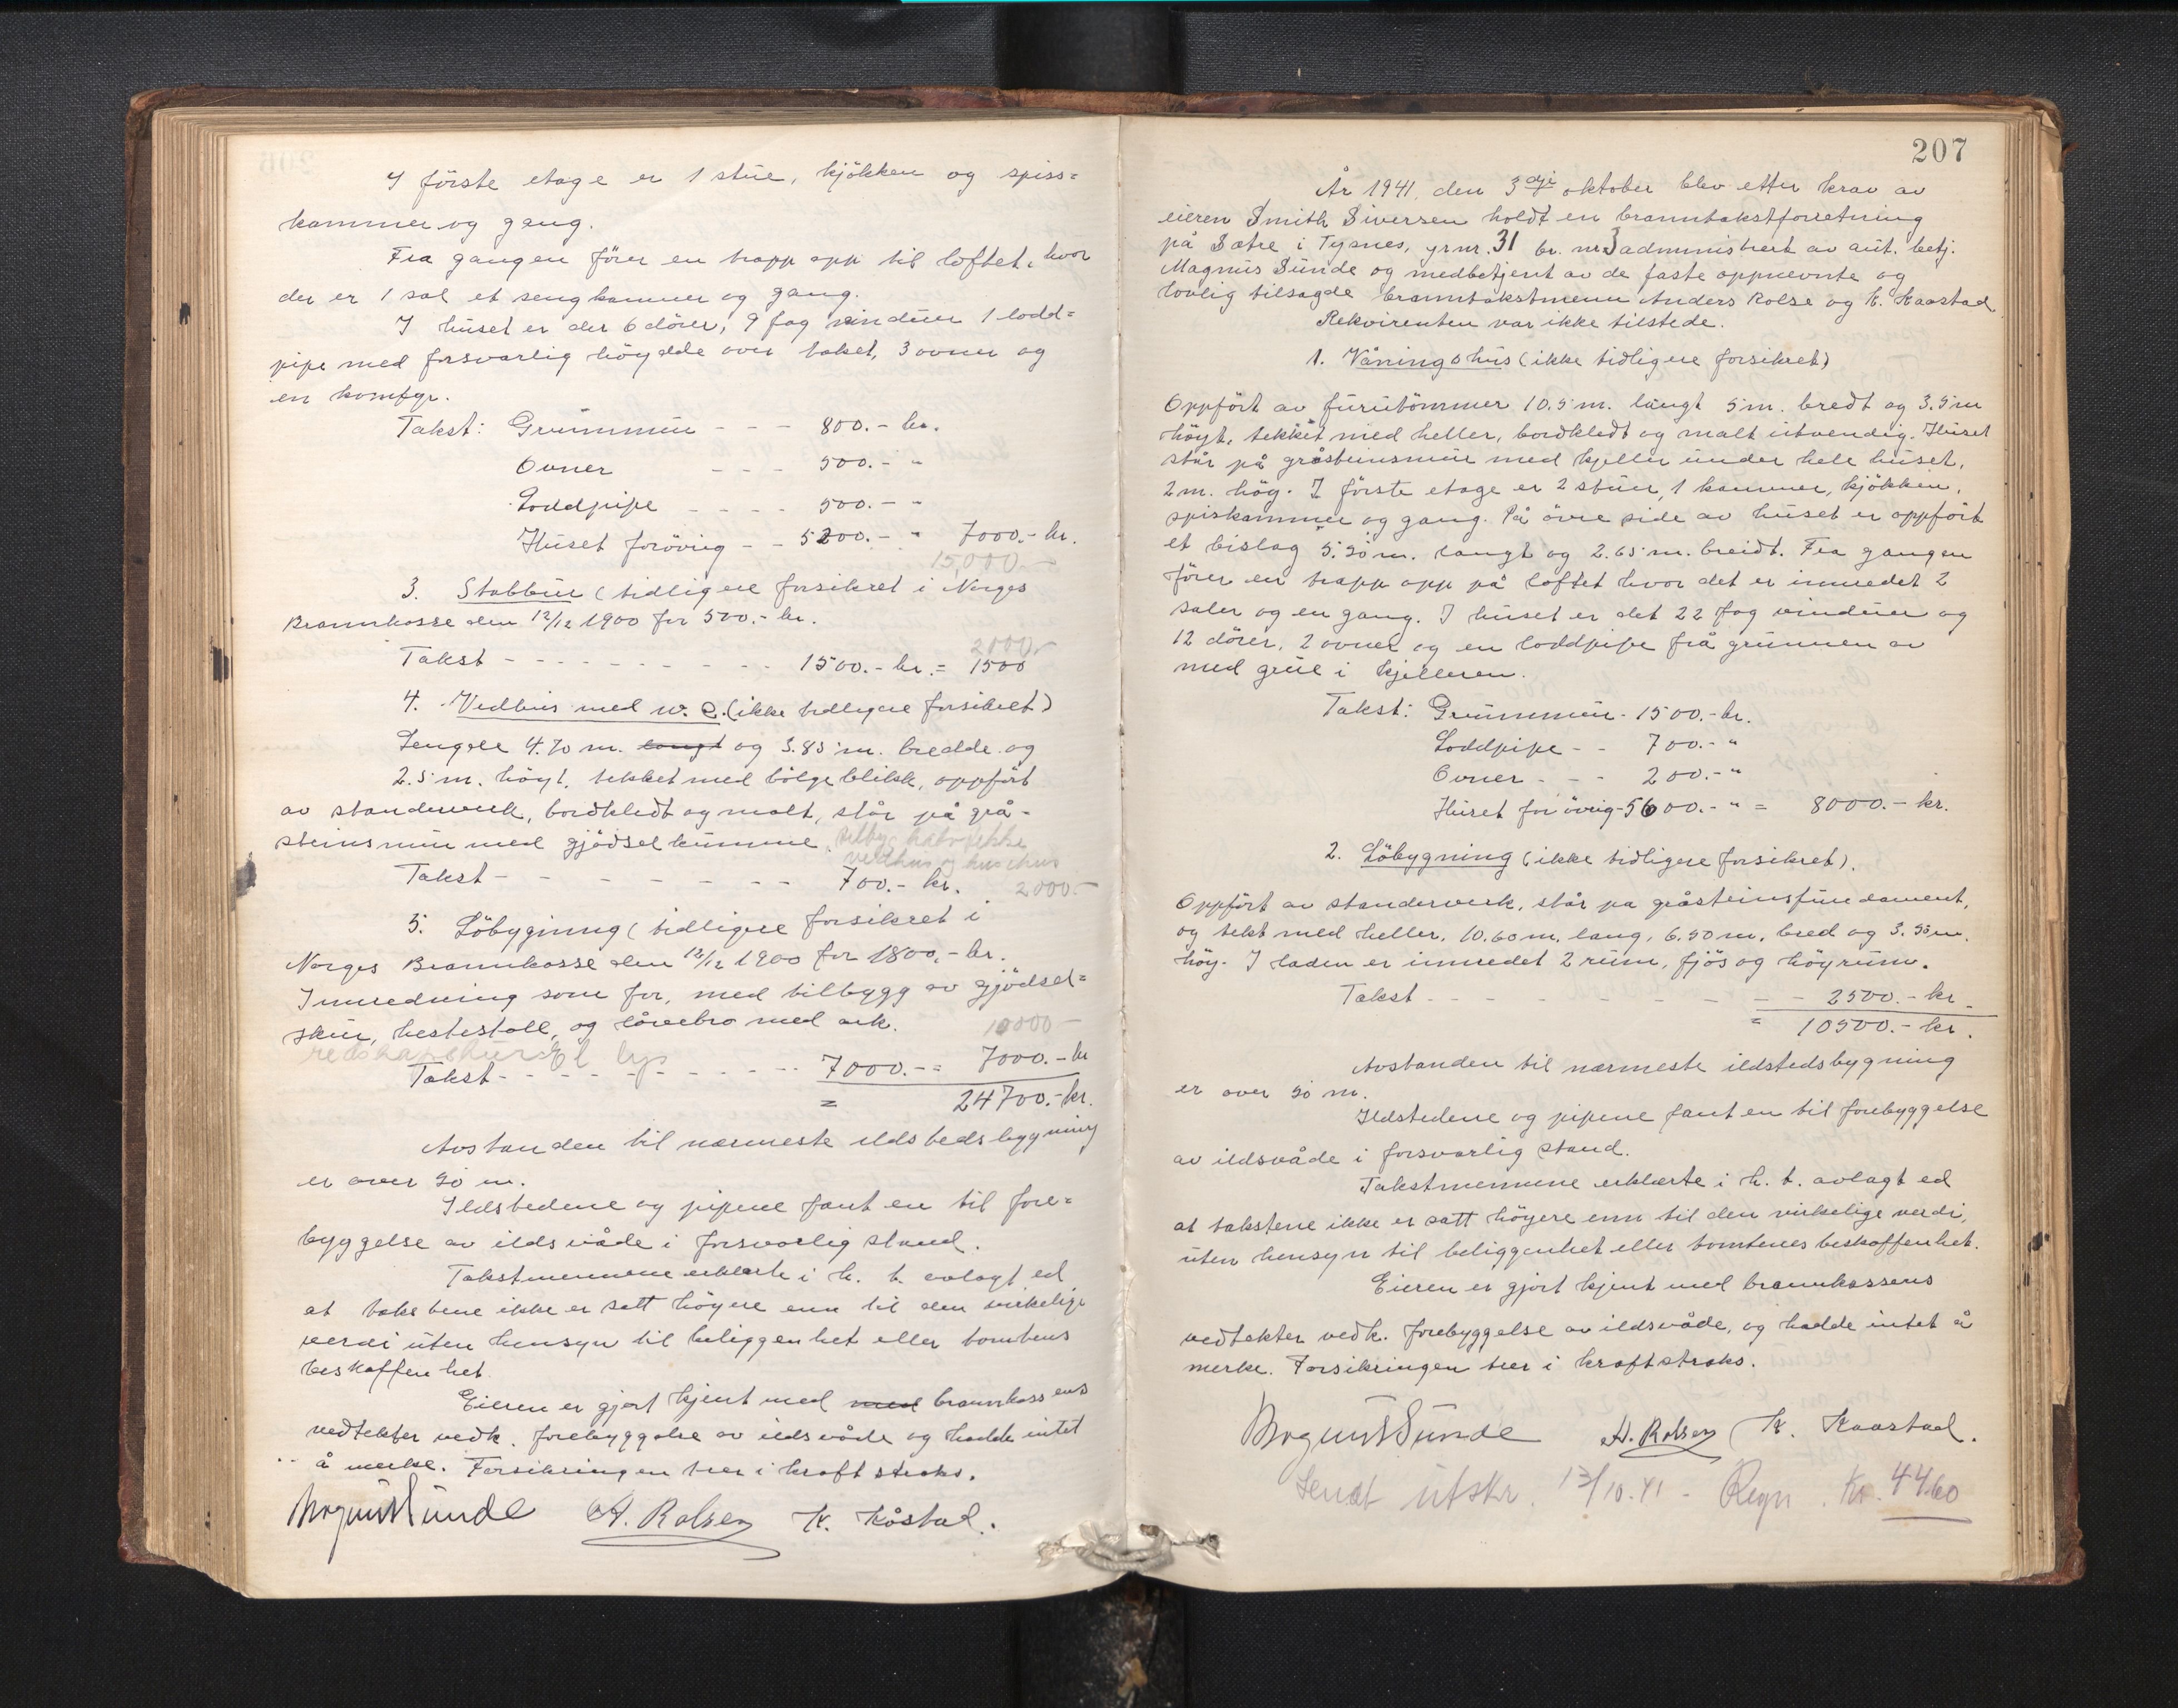 I förste etage er 1 stue, kjökken og spiss=
kammer og gang.
Fra gangen förer en trapp opp til loftet, hvor
der er 1 sal et sengkammer og gang.
I huset er der 6 dörer, 9 fag vinduer 1 lodd=
pipe med forsvarlig höydde over taket, 3 ovner og
en komfyr.
Takst: Grunnmur - - - 800.- kr.
Ovner - - - 500.- "
Loddpipe - - - - 500.- "
Huset forövrig - - 5200.- " 7000.- kr.
15,000.-
3. Stabbur (tidligere forsikret i Norges
Brannkasse den 12/12 1900 for 500.- kr.
2000.-
Takst - - - - - - - - - - 1500.- kr. = 1500
4. Vedhus med w.c. (ikke tidligere forsikret)
Lengde 4.70 m. langt og 3.85 m. bredde og
2.5 m. höyt, tekket med bölgeblikk, oppfört
av standerverk, bordkledt og malt, står på grå-
steinsmur med gjödselkumme.
vedhus og
Takst - - - - - - - - 700.- kr. 2000.-
5. Löbygning (tidligere forsikret i
Norges Brannkasse den 12/12 1900 for 1800.- kr.
Innredning som för, med tilbygg av gjödsel=
skur, hestestall, og låvebro med ark. 10000 -
redskapskur El lys
Takst - - - - - - - - - - 7000.- = 7000.- kr
= 24700.- kr.
Avstanden til nærmeste ildstedsbygning
er over 50 m.
Ildstedene og pipene fant en til fore=
byggelse av ildsvåde i forsvarlig stand.
Takstmennene erklærte i h. t. avlagt ed
at takstene ikke er satt höyere enn til den virkelige
verdi uten hensyn til beliggenhet eller tomtens
beskaffenhet.
Eieren er gjort kjent med med brannkassens
vedtekter vedk. forebyggelse av ildsvåde og hadde intet
å merke. Forsikringen trer i kraft straks.
Magnus Sunde A. Rolsen K. Kåstad.
207
År 1941, den 3dje oktober blev etter krav av
eieren Smith Siversen holdt en branntakstforretning
på Sætre i Tysnes, grnr. 31 br. nr. 3 administrert av aut. betj.
Magnus Sunde og medbetjent av de faste oppnevnte og
lovlig tilsagde branntakstmenn Anders Rolse og K. Kaastad.
Rekvirenten var ikke tilstede.
1. Våningshus (ikke tidligere forsikret)
Oppfört av furutömmer 10.5 m. langt 5 m. bredt og 3.5 m
höyt, tekket med heller, bordkledt og malt utvendig. Huset
står på gråsteinsmur med kjeller under hele huset,
2 m. hög. I förste etage er 2 stuer, 1 kammer, kjökken,
spiskammer og gang. På övre side av huset er oppfört
et bislag 5.50 m. langt og 2.65 m. breidt. Fra gangen
förer en trapp opp på loftet hvor det er innredet 2
saler og en gang. I huset er det 22 fag vinduer og
12 dörer, 2 ovner og en loddpipe frå grunnen av
med grue i kjelleren.
Takst: Grunnmur - 1500.- kr.
Loddpipe - - 700.- "
Ovner - - - 200.- "
Huset for övrig - 5600.- " = 8000.- kr.
2. Löbygning (ikke tidligere forsikret).
Oppfört av standerverk, står på gråsteinsfundament,
og tekt med heller, 10.60 m. lang, 6.50 m. bred og 3.50 m.
höy. I laden er innredet 2 rum, fjös og höyrum.
Takst - - - - - - - - - 2500.- kr.
= 10500.- kr.
Avstanden til nærmeste ildstedsbygning
er over 50 m.
Ildstedene og pipene fant en til forebyggelse
av ildsvåde i forsvarlig stand.
Takstmennene erklærte i h. t. avlagt ed
at takstene ikke er satt höyere enn til den virkelige verdi,
uten hensyn til beliggenhet eller tomtenes beskaffenhet.
Eieren er gjort kjent med brannkassens
vedtekter vedk. forebyggelse av ildsvåde, og hadde intet å
merke. Forsikringen trer i kraft straks.
Magnus Sunde A. Rolsen K. Kaastad.
Sendt utskr. 13/10.41 - Regn. Kr. 44.60